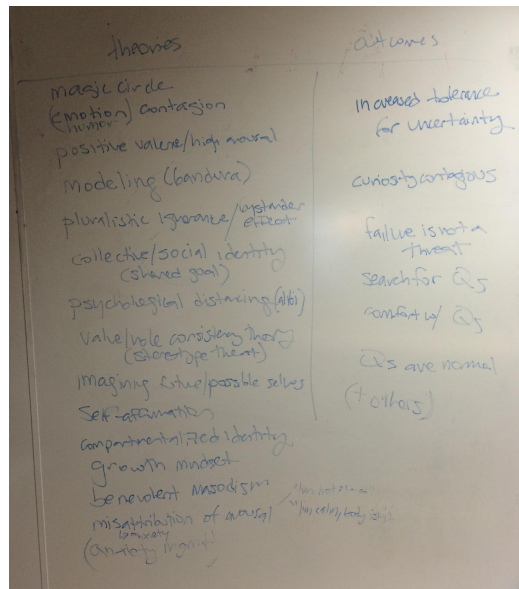 theories
magic circle
(emotion) contagion
humor
positive valence/high arousal
modeling (bandura)
pluralistic ignorance/bystander
effect
collective/social identity
(shared goal)
psychological distancing (alibi)
value/role consistency theory
(stereotype threat)
imagining future/possible selves
self-affirmation
compartmentalized identity
growth mindset
benevolent masodism
misattribution of arousal
(anxiety
outcomes
increased tolerance
for uncertainty
curiosity contagious
failure is not a
threat
search for Qs
comfort w/ Qs
Qs are normal
(+ others)